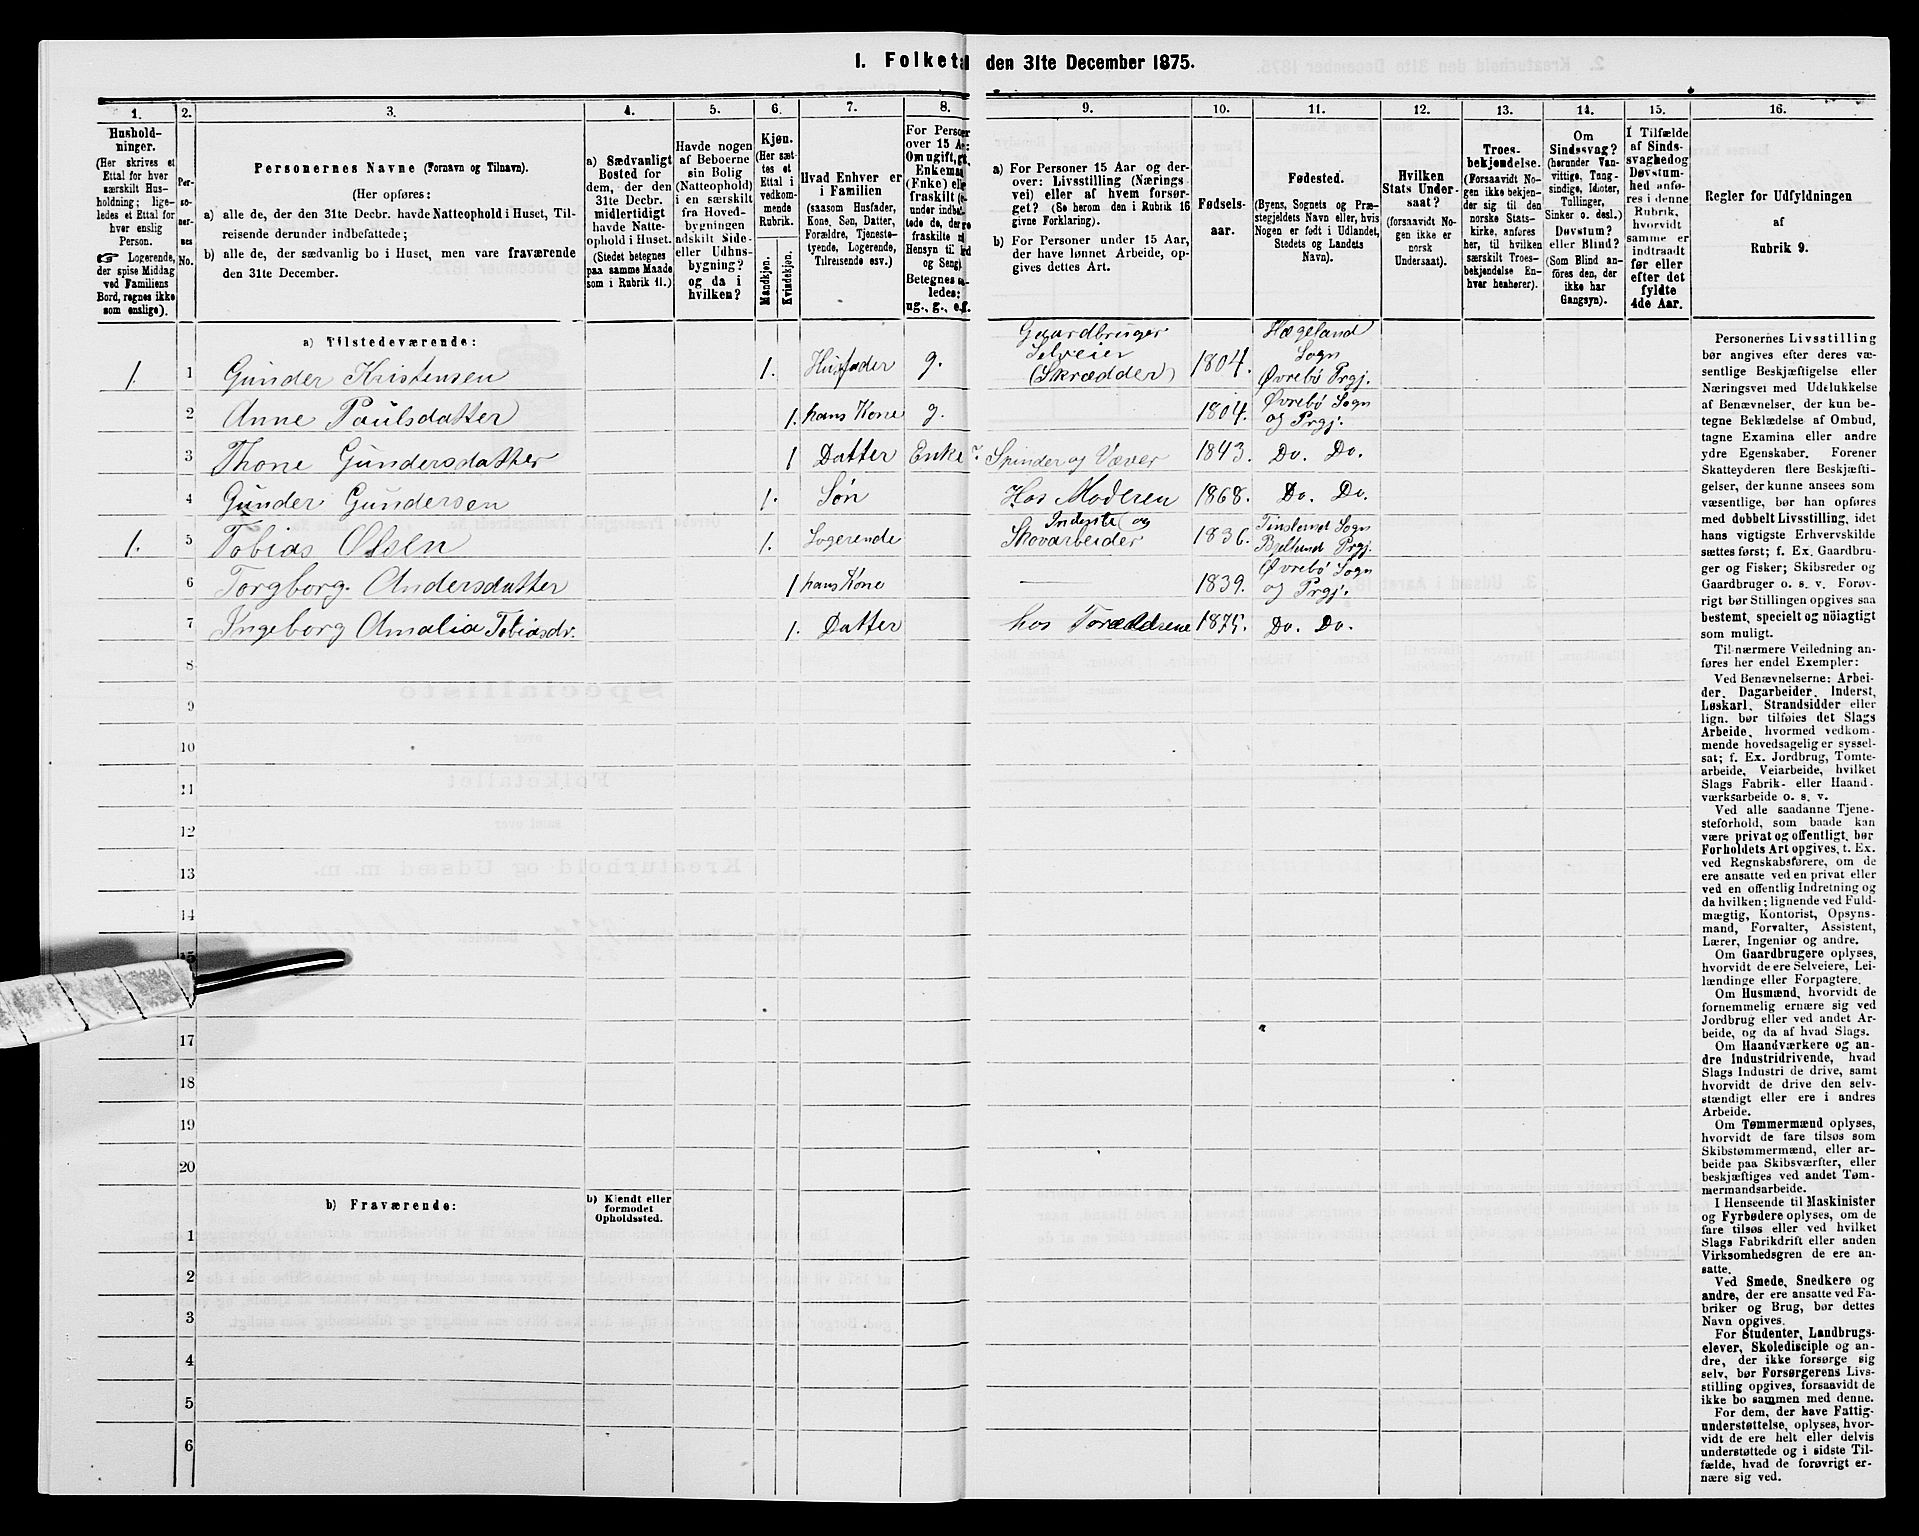 I. Folketal den 31te December 1875.
1. 2. 3. 4. 5. 6. 7. 8. 9. 10. 11. 12. 13. 14. 15. 16.
Hushold-
ninger.
(Her skrives et
Ettal for hver
særskilt Hus-
holdning; lige-
ledes et Ettal for
hver enslig
Person.
☞ Logerende,
der spise Middag
ved Familiens
Bord, regnes ikke
som enslige).
Per-
so-
ner-
nes
No.
Personernes Navne (Fornavn og Tilnavn).
(Her opføres:
a) alle de, der den 31te Decbr. havde Natteophold i Huset, Til-
reisende derunder indbefattede;
b) alle de, der sædvanlig bo i Huset, men vare fraværende
den 31te December.
a) Sædvanligt
Bosted for
dem, der den
31te Decbr.
midlertidigt
havde Natte-
ophold i Huset.
(Stedet betegnes
paa samme Maade
som i Rubrik 11.)
Havde nogen
af Beboerne
sin Bolig
(Natteophold)
i en særskilt
fra Hoved-
bygningen
adskilt Side-
eller Udhus-
bygning?
og da i
hvilken?
Kjøn.
(Her sæt-
tes et
Ettal i
vedkom-
mende
Rubrik.
Mandkjøn.
Kvindekjøn.
Hvad Enhver er
i Familien
(saasom Husfader,
Kone, Søn, Datter,
Forældre, Tjeneste-
tyende, Logerende,
Tilreisende osv.)
For Person
over 15 Aar:
Om ugift, gi
Enkema
(Enke) elle
fraskilt
under indbe
tede de, der
fraskilte
Hensyn til
og Seng)
Betegnes
ledes:
ug., g., e.
a) For Personer 15 Aar og der-
over: Livsstilling (Nærings
vei) eller af hvem forsør-
get? (Se herom den i Rubrik 16
givne Forklaring).
b) For Personer under 15 Aar,
der have lønnet Arbeide, op-
gives dettes Art.
Fødsels-
aar.
Fødested.
(Byens, Sognets og Præ-
stegjeldets Navn eller, hvis
Nogen er født i Udlandet,
Stedets og Landets
Navn).
Hvilken
Stats Under-
saat?
(forsaavidt No-
gen ikke er
norsk
Undersaat).
Troes-
bekjendelse.
(Forsaavidt No-
gen ikke bekjen-
der sig til den
norske Stats-
kirke, anføres
her, til hvilken
særskilt Troes-
bekjendelse En-
hver henhører).
Om
Sindssvag?
(herunder Van-
vittige, Tung-
sindige, Idioter,
Tullinger,
Sinker o. desl.)
Døvstum?
eller Blind?
(Som Blind an-
føres den, der
ikke har
Gangsyn).
I Tilfælde
af Sinds-
svaghed og
Døvstum-
hed anfø-
res i denne
Rubrik,
hvorvidt
samme er
indtraadt
før eller
efter det
fyldte
4de Aar.
Regler for Udfyldningen
af
Rubrik 9.
a) Tilstedeværende:
1. 1 Gunder Kristensen 1. Husfader g. Gaardbruger Selveier (Skrædder) 1804. Hægeland Sogn Øvrebø Prgj.
2 Anne Paulsdatter 1. hans Kone g. 1804. Øvrebø Sogn og Prgj.
3 Thone Gundersdatter 1 Datter Enke Spinder og Væver 1843. Do. Do.
4 Gunder Gundersen 1. Søn Hos Moderen 1868. Do. Do.
1. 5 Tobias Olsen 1. Logerende Inderste og Skovarbeider 1836. Sogn Prgj.
6 Torgborg Andersdatter 1 hans Kone 1839. Øvrebø Sogn og Prgj.
7 Ingeborg Amalia Tobiasdr. 1. Datter hos Forældrene 1875. Do. Do.
8
9
10
11
12
13
14
15
17
18
19
20
b) Fraværende: b) Kjendt eller
formodet
Opholdssted.
1
2
3
4
5
6
Personernes Livsstilling
bør angives efter deres væ-
sentlige Beskjæftigelse eller
Næringsvei med Udelukkelse
af Benævnelser, der kun be-
tegne Beklædelse af Ombud,
tagne Examina eller andre
ydre Egenskaber. Forener
Skatteyderen flere Beskjæfti-
gelser, der kunne ansees som
væsentlige, bør han opføres
med dobbelt Livsstilling, idet
hans vigtigste Erhvervskilde
sættes først; f. Ex. Gaardbru-
ger og Fisker; Skibsreder og
Gaardbruger o. s. v. Forøv-
rigt bør Stillingen opgives saa
bestemt, specielt og nöiagtigt
som muligt.
Til nærmere Veiledning an-
føres her endel Exempler:
Ved Benævnelserne: Arbei-
der, Dagarbeider, Inderst,
Løskarl, Strandsidder eller
lign. bør tilføies det Slags
Arbeide, hvormed vedkom-
mende hovedsagelig er syssel-
sat; f. Ex. Jordbrug, Tomte-
arbeide, Veiarbeide, hvilket
Slags Fabrik- eller Haand-
værksarbeide o. s. v.
Ved alle saadanne Tjene-
steforhold, som baade kan
være privat og offentligt, bør
Forholdets Art opgives, t. Ex.
ved Regnskabsførere, om de
ere ansatte ved en privat eller
ved en offentlig Indretning og
da hvilken; lignende ved Fuld-
mægtig, Kontorist, Opsyns-
mand, Forvalter, Assistent,
Lærer, Ingeniør og andre.
Om Gaardbrugere oplyses,
hvorvidt de ere Selveiere, Lei-
lændinge eller Forpagtere.
Om Husmænd, hvorvidt de
fornemmelig ernære sig ved
Jordbrug eller ved andet Ar-
beide, og da af hvad Slags.
Om Haandværkere og an-
dre Industridrivende, hvad
Slags Industri de drive, samt
hvorvidt de drive den selv-
stændigt eller ere i andres
Arbeide.
Om Tømmermænd oplyses,
hvorvidt de fare tilsøs som
Skibstømmermænd, eller ar-
beide paa Skibsværfter, eller
beskjæftiges ved andet Tøm-
mermandsarbeide.
I Henseende til Maskinister
og Fyrbødere oplyses, om de
fare tilsøs eller ved hvilket
Slags Fabrikdrift eller anden
Virksomhedsgren de ere an-
satte.
Ved Smede, Snedkere og
andre, der ere ansatte ved Fa-
briker og Brug, bør dettes
Navn opgives.
For Studenter, Landbrugs-
elever, Skoledisciple og an-
dre, der ikke forsørge sig
selv, bør Forsørgerens Livs-
stilling opgives, forsaavidt de
ikke bo sammen med denne.
For dem, der have Fattig-
understøttelse, oplyses, hvor-
vidt de ere helt eller delvis
understøttede og i sidste Til-
fælde, hvad de forøvrigt er-
nære sig ved.